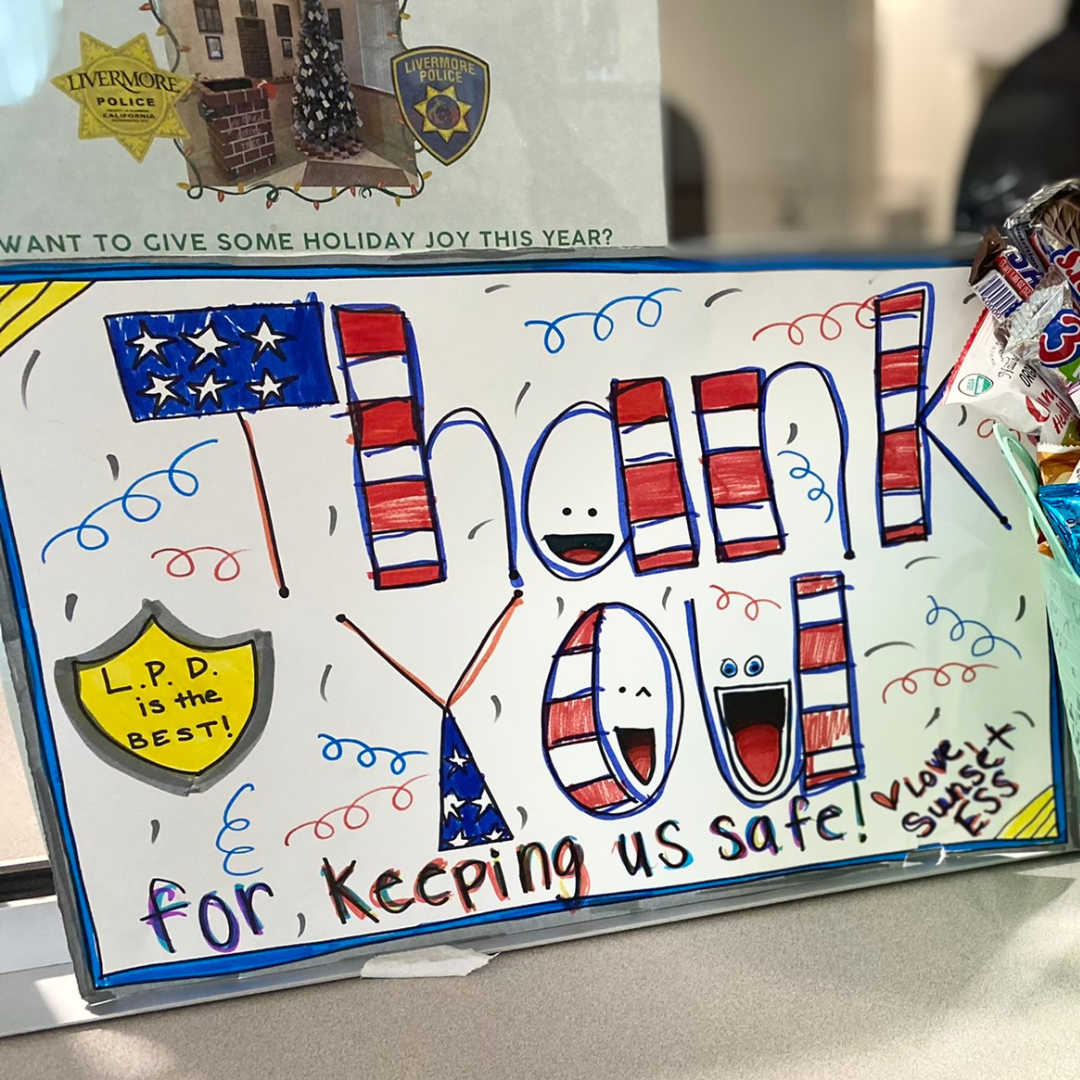 LIVERMORE
POLICE
CALIFORNIA
LIVERMORE
POLICE
WANT TO GIVE SOME HOLIDAY JOY THIS YEAR?
Thank
You!
L.P.D.
is the
BEST!
for Keeping us safe!
Love
Sunset
ESS
USDA
3